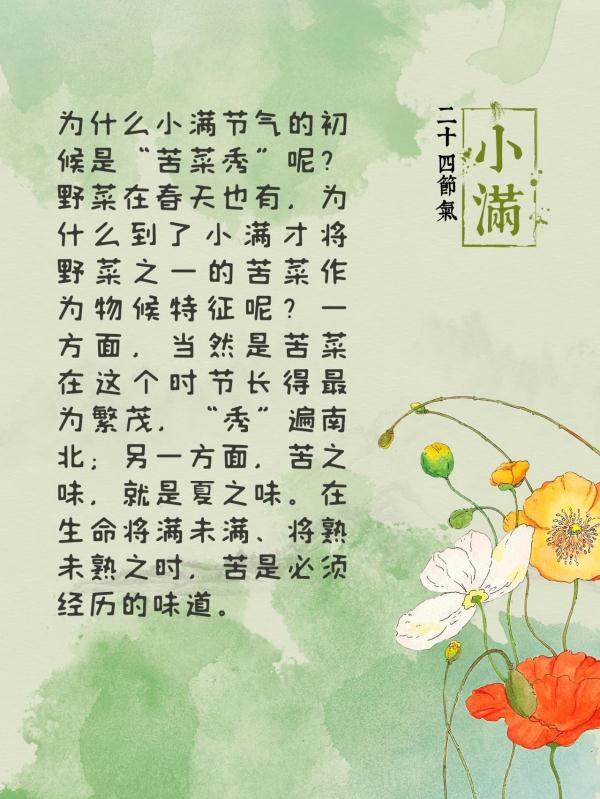 为什么小满节气的初
候是“苦菜秀”呢？
野菜在春天也有，为
什么到了小满才将
野菜之一的苦菜作
为物候特征呢？一
方面，当然是苦菜
在这个时节长得最
为繁茂，“秀”遍南
北；另一方面，苦之
味，就是夏之味。在
生命将满未满、将熟
未熟之时，苦是必须
经历的味道。
小滿
二十四節氣